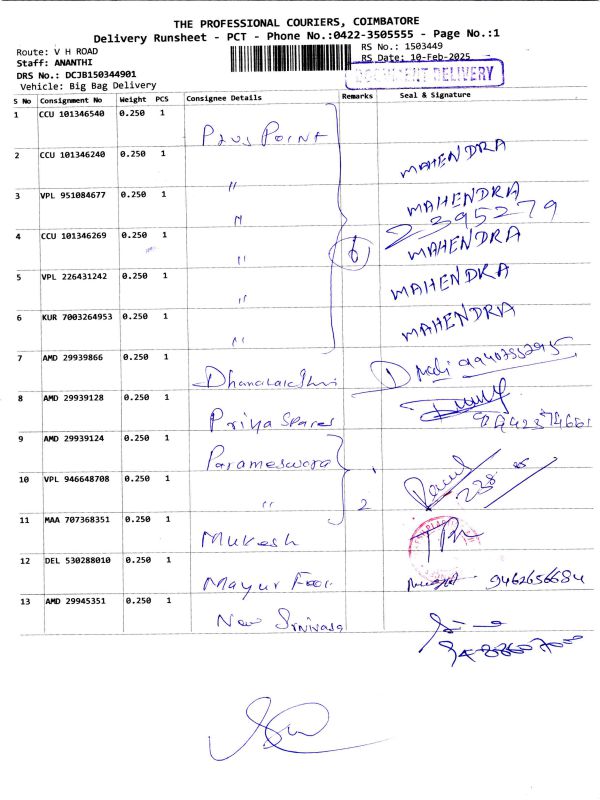 THE PROFESSIONAL COURIERS, COIMBATORE
Delivery Runsheet - PCT - Phone No.:0422-3505555 - Page No.:1
Route: V H ROAD RS No.: 1503449
Staff: ANANTHI RS Date: 10-Feb-2025
DRS No.: DCJB150344901 DOCUMENT DELIVERY
Vehicle: Big Bag Delivery
S No Consignment No Weight PCS Consignee Details Remarks Seal & Signature
1 CCU 101346540 0.250 1 Plus Point
2 CCU 101346240 0.250 1 " MAHENDRA
3 VPL 951084677 0.250 1 " MAHENDRA
2395279
4 CCU 101346269 0.250 1 " 6 MAHENDRA
5 VPL 226431242 0.250 1 " MAHENDRA
6 KUR 7003264953 0.250 1 " MAHENDRA
7 AMD 29939866 0.250 1
8 AMD 29939128 0.250 1 Priya Spares
9 AMD 29939124 0.250 1 Parameswara
10 VPL 946648708 0.250 1 " 2
11 MAA 707368351 0.250 1 Mukesh
12 DEL 530288010 0.250 1 Mayur 9462656684
13 AMD 29945351 0.250 1 New Srinivasa